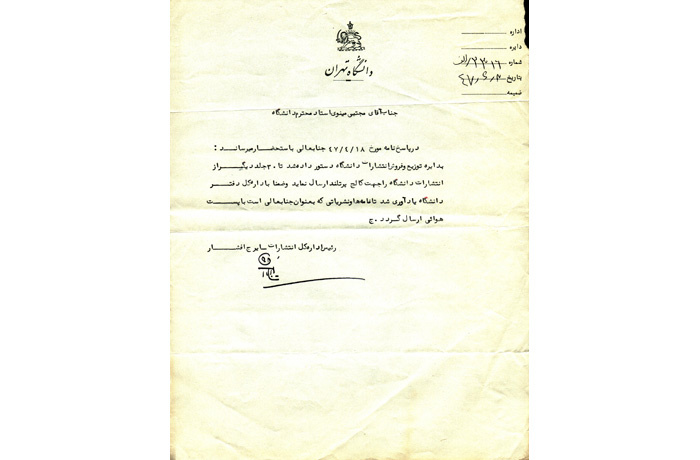 اداره
دایره
شماره ۳۳۰۱۶
بتاریخ
ضمیمه
دانشگاه تهران
جناب آقای مجتبی مینوی استاد محترم دانشگاه
در پاسخ نامه مورخ ۴۷/۴/۱۸ جنابعالی باستحضار میرساند :
بدایره توزیع و فروش انتشارات دانشگاه دستور داده شد تا ۳۰ جلد دیگر از
انتشارات دانشگاه را جهت کالج پرتلند ارسال نماید وضمنا باداره کل دفتر
دانشگاه یادآوری شد تا نامه ها ونشریاتی که بعنوان جنابعالی است با پست
هوائی ارسال گردد . ج
رئیس اداره کل انتشارات - ایرج افشار